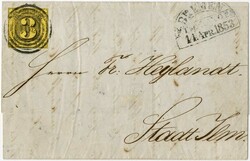 3
11 Apr. 1853
Herrn Fr. Heylandt
Stadt Ilm